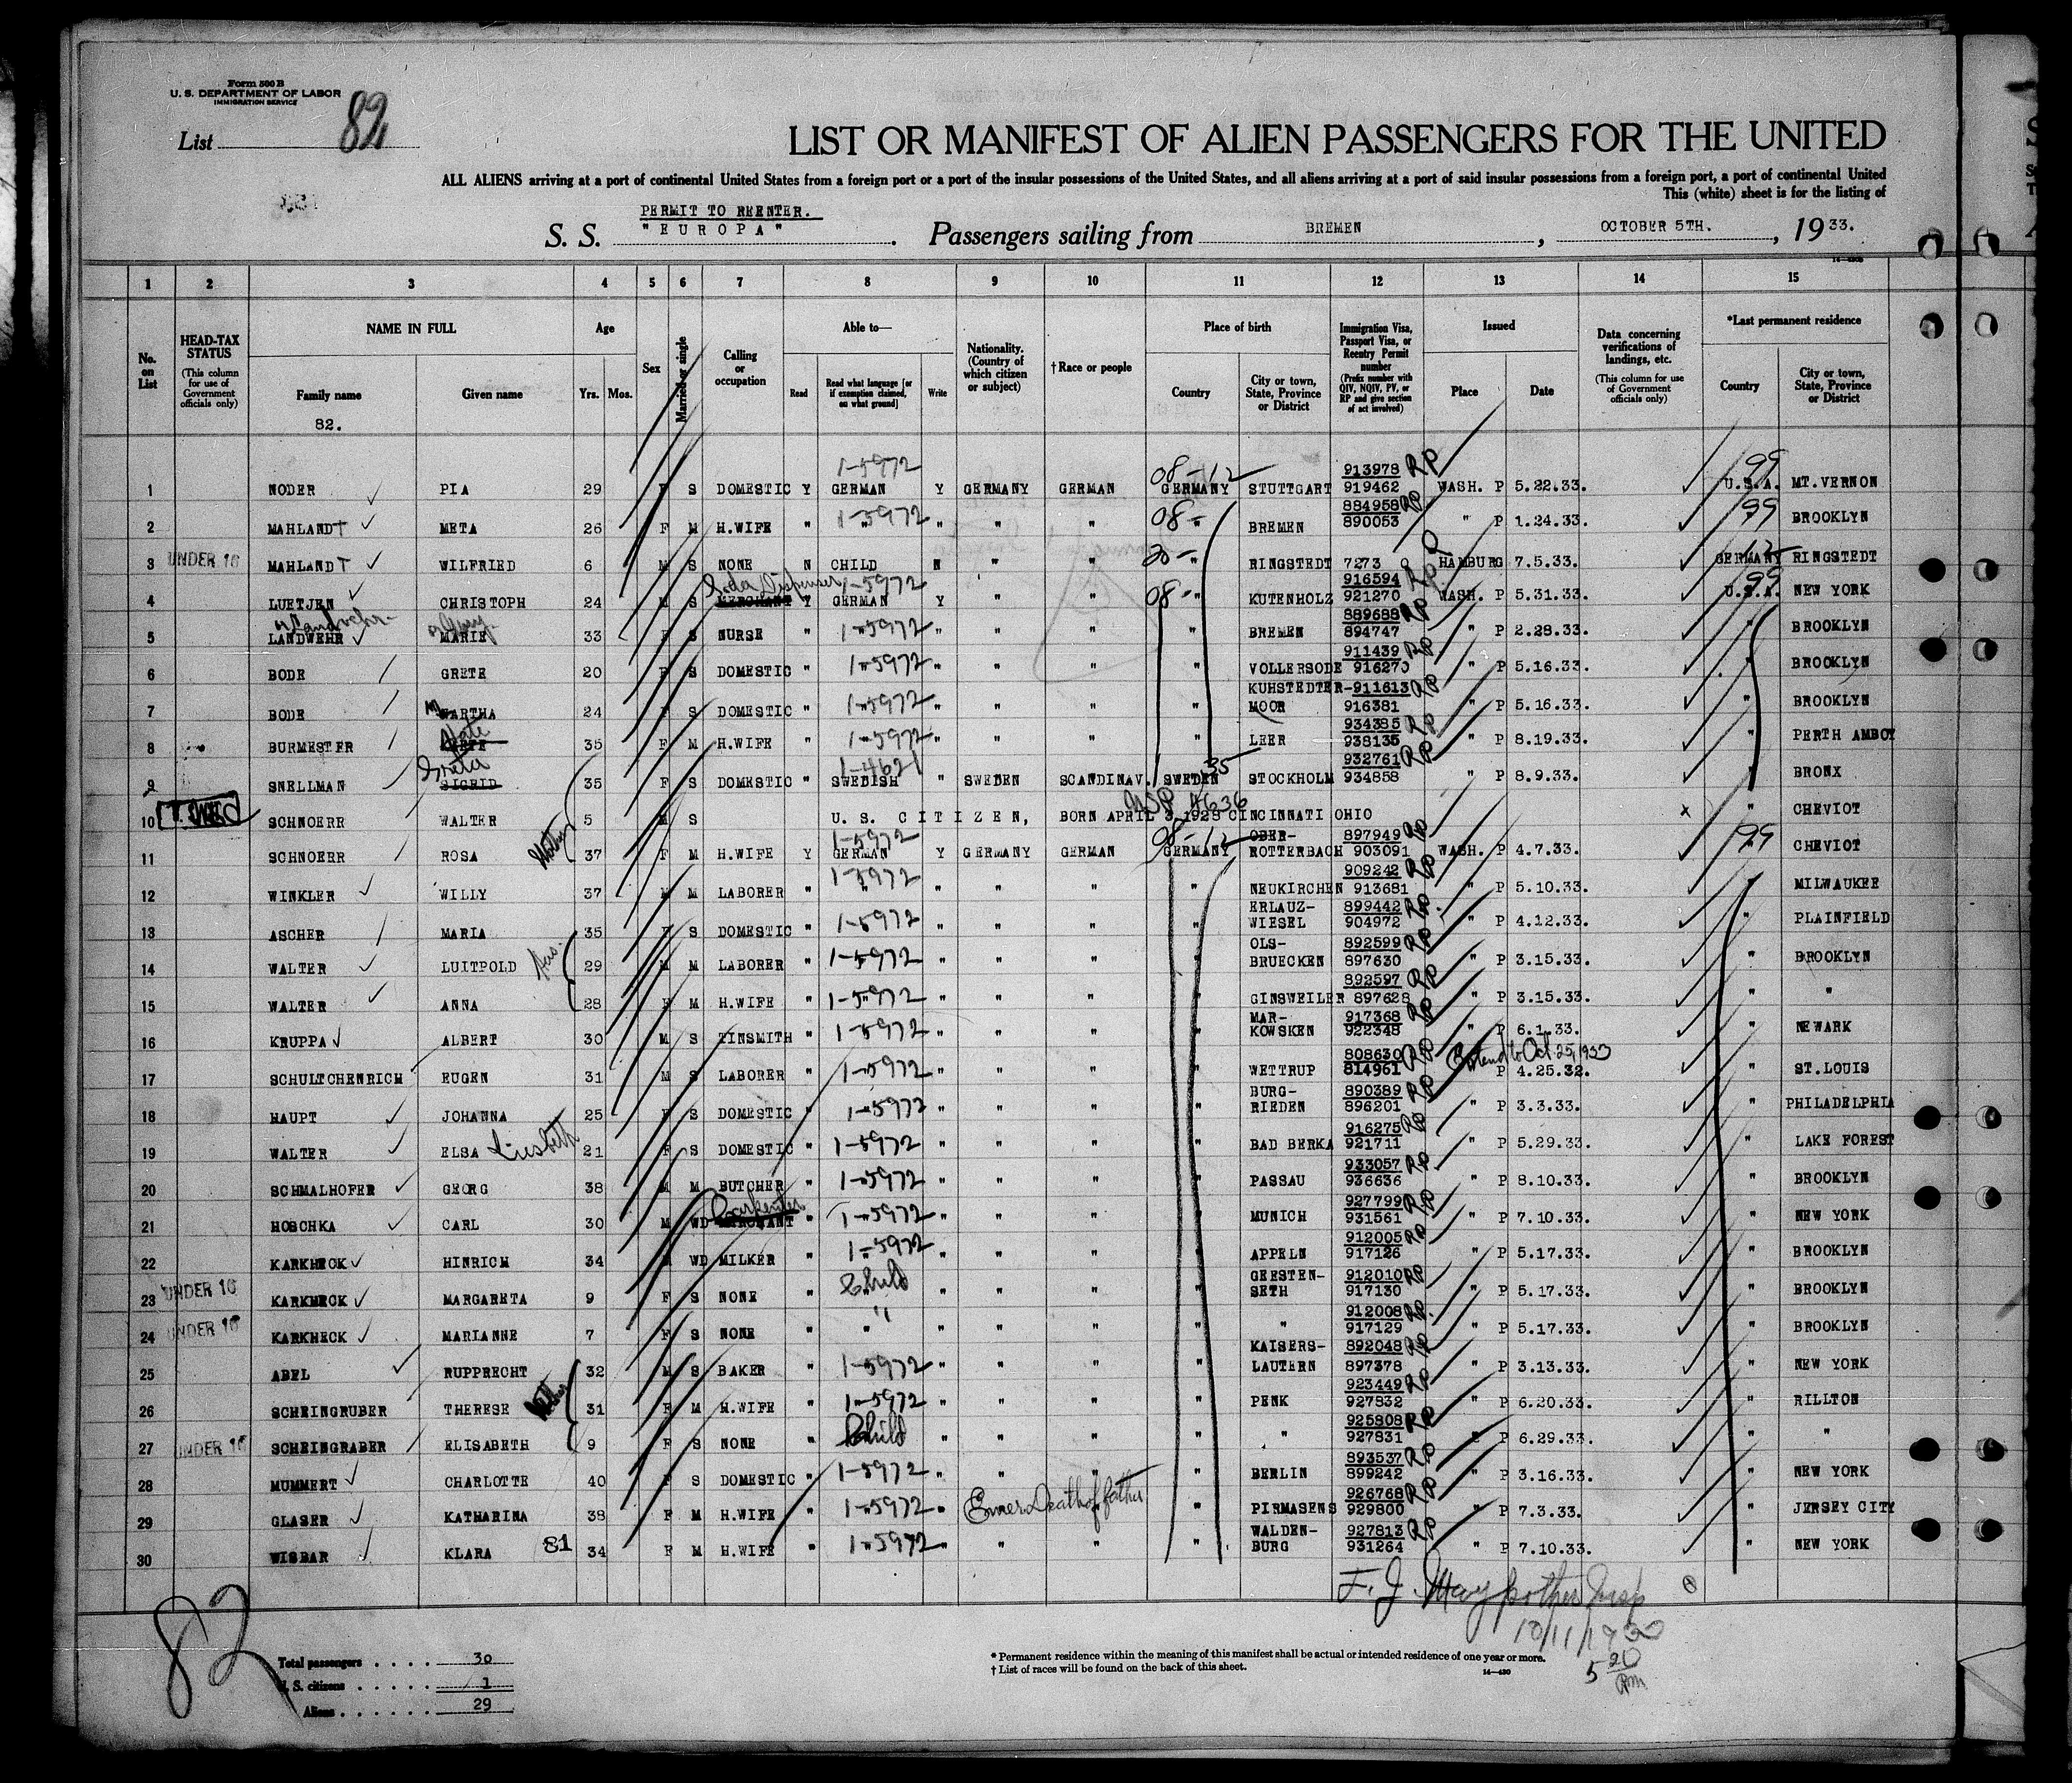 Form 500 B
U. S. DEPARTMENT OF LABOR
IMMIGRATION SERVICE
List 82
LIST OR MANIFEST OF ALIEN PASSENGERS FOR THE UNITED
ALL ALIENS arriving at a port of continental United States from a foreign port or a port of the insular possessions of the United States, and all aliens arriving at a port of said insular possessions from a foreign port, a port of continental United
This (white) sheet is for the listing of
PERMIT TO REENTER.
S. S. "EUROPA" . Passengers sailing from BREMEN , OCTOBER 5TH. , 19 33.
1 2 3 4 5 6 7 8 9 10 11 12 13 14 15
No. on List HEAD-TAX STATUS (This column for use of Government officials only) NAME IN FULL Family name Given name Age Yrs. Mos. Sex Married or single Calling or occupation Able to— Read Read what language [or if exemption claimed, on what ground] Write Nationality. (Country of which citizen or subject) †Race or people Place of birth Country City or town, State, Province or District Immigration Visa, Passport Visa, or Reentry Permit number (Prefix number with QIV, NQIV, PV, or RP and give section of act involved) Issued Place Date Data concerning verifications of landings, etc. (This column for use of Government officials only) *Last permanent residence Country City or town, State, Province or District
82.
1 NODER PIA 29 F S DOMESTIC Y GERMAN 1-5972 Y GERMANY GERMAN 08-12 GERMANY STUTTGART 913978 RP 919462 WASH. P 5.22.33. 99 U.S.A. MT.VERNON
2 MAHLANDT META 26 F M H.WIFE " 1-5972 " " " 08- " BREMEN 884958 RP 890053 " P 1.24.33. 99 BROOKLYN
3 UNDER 16 MAHLANDT WILFRIED 6 M S NONE N CHILD N " " 20- " RINGSTEDT 7273 HAMBURG 7.5.33. GERMANY 12 RINGSTEDT
4 LUETJEN CHRISTOPH 24 M S MERCHANT Soda Dispenser Y GERMAN 1-5972 Y " " 08- " KUTENHOLZ 916594 RP 921270 WASH. P 5.31.33. 99 U.S.A. NEW YORK
5 LANDWEHR MARIE 33 F S NURSE " 1-5972 " " " " BREMEN 889688 RP 894747 " P 2.28.33. BROOKLYN
6 BODE GRETE 20 F S DOMESTIC " 1-5972 " " " " VOLLERSODE 911439 RP 916270 " P 5.16.33. " BROOKLYN
7 BODE MARTHA 24 F S DOMESTIC " 1-5972 " " " " KUHSTEDTER-MOOR 911613 RP 916381 " P 5.16.33. " BROOKLYN
8 BURMESTER Kate 35 F M H.WIFE " 1-5972 " " " " LEER 934385 RP 938135 " P 8.19.33. " PERTH AMBOY
9 SNELLMAN SIGRID Greta 35 F S DOMESTIC " SWEDISH 1-4621 " SWEDEN SCANDINAV. SWEDEN 35 STOCKHOLM 932761 RP 934858 " P 8.9.33. " BRONX
10 SCHNOERR WALTER 5 M S U. S. CITIZEN, BORN APRIL 3, 1928 CINCINNATI OHIO x " CHEVIOT
11 SCHNOERR ROSA Mother 37 F M H.WIFE Y GERMAN 1-5972 Y GERMANY GERMAN 08-12 GERMANY OBER-ROTTERBACH 897949 RP 903091 WASH. P 4.7.33. 99 CHEVIOT
12 WINKLER WILLY 37 M M LABORER " 1-5972 " " " " NEUKIRCHEN 909242 RP 913681 " P 5.10.33. MILWAUKEE
13 ASCHER MARIA 35 F S DOMESTIC " 1-5972 " " " " ERLAUZ-WIESEL 899442 RP 904972 " P 4.12.33. " PLAINFIELD
14 WALTER LUITPOLD 29 M M LABORER " 1-5972 " " " " OLS-BRUECKEN 892599 RP 897630 " P 3.15.33. " BROOKLYN
15 WALTER ANNA 28 F M H.WIFE " 1-5972 " " " " GINSWEILER 892597 RP 897628 " P 3.15.33. " "
16 KRUPPA ALBERT 30 M S TINSMITH " 1-5972 " " " " MAR-KOWSKEN 917368 RP 922348 " P 6.1.33. " NEWARK
17 SCHULTCHENRICH EUGEN 31 M S LABORER " 1-5972 " " " " WETTRUP 808630 RP 814961 Extend to Oct 25, 1933 P 4.25.32. " ST.LOUIS
18 HAUPT JOHANNA 25 F S DOMESTIC " 1-5972 " " " " BURG-RIEDEN 890389 RP 896201 " P 3.3.33. " PHILADELPHIA
19 WALTER ELSA Liesbeth 21 F S DOMESTIC " 1-5972 " " " " BAD BERKA 916275 RP 921711 " P 5.29.33. " LAKE FOREST
20 SCHMALHOFER GEORG 38 M M BUTCHER " 1-5972 " " " " PASSAU 933057 RP 936636 " P 8.10.33. " BROOKLYN
21 HOSCHKA CARL 30 M WD MERCHANT Carpenter " 1-5972 " " " " MUNICH 927799 RP 931561 " P 7.10.33. " NEW YORK
22 KARKHECK HINRICH 34 M WD MILKER " 1-5972 " " " " APPELN 912005 RP 917126 " P 5.17.33. " BROOKLYN
23 UNDER 16 KARKHECK MARGARETA 9 F S NONE " Child " " " " GEESTEN-SETH 912010 RP 917130 " P 5.17.33. " BROOKLYN
24 UNDER 16 KARKHECK MARIANNE 7 F S NONE " " " " " " " 912008 RP 917129 " P 5.17.33. " BROOKLYN
25 ABEL RUPPRECHT 32 M S BAKER " 1-5972 " " " " KAISERS-LAUTERN 892048 RP 897378 " P 3.13.33. " NEW YORK
26 SCHEINGRUBER THERESE Mother 31 F M H.WIFE " 1-5972 " " " " PENK 923449 RP 927832 " P 6.20.33. " RILLTON
27 UNDER 16 SCHEINGRABER ELISABETH 9 F S NONE " Child " " " " " 925808 RP 927831 " P 6.29.33. " "
28 MUMMERT CHARLOTTE 40 F S DOMESTIC " 1-5972 " " " " BERLIN 893537 RP 899242 " P 3.16.33. " NEW YORK
29 GLASER KATHARINA 38 F M H.WIFE " 1-5972 " Death of father " PIRMASENS 926768 RP 929800 " P 7.3.33. " JERSEY CITY
30 WISBAR KLARA 81 34 F M H.WIFE " 1-5972 " " " " WALDEN-BURG 927813 RP 931264 " P 7.10.33. " NEW YORK
F. J. Insp
10/11/1933
5 20 Pm
82
Total passengers . . . . 30
U. S. citizens . . . . . 1
Aliens . . . . . . 29
* Permanent residence within the meaning of this manifest shall be actual or intended residence of one year or more.
† List of races will be found on the back of this sheet.
14—430